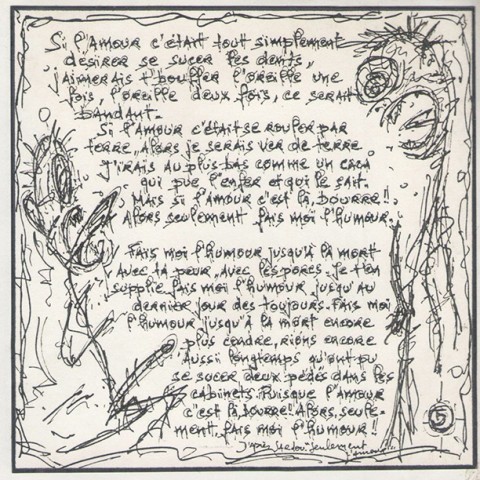 Si l'AMOUR c'était tout simplement
desirer se sucer les dents,
j'aimerais t'bouffer l'oreille une
fois, l'oreille deux fois, ce serait
bandant.
Si l'amour c'était se rouler par
terre, alors je serais ver de terre
J'irais au plus bas comme un caca
qui pue l'enfer et qui le sait.
Mais si l'AMOUR c'est là, bourre!!
Alors seulement fais moi l'humour.
Fais moi l'humour jusqu'à la mort
avec ta peur, avec les porcs. Je t'en
supplie, fais moi l'humour jusqu'au
dernier jour des toujours. Fais moi
l'humour jusqu'à la mort encore
plus cendre, rions encore
Aussi longtemps qu'ont pu
se sucer deux pédés dans les
cabinets. Puisque l'amour
c'est là, bourre! Alors, seule-
ment, fais moi l'humour!
d'après "seulement
5